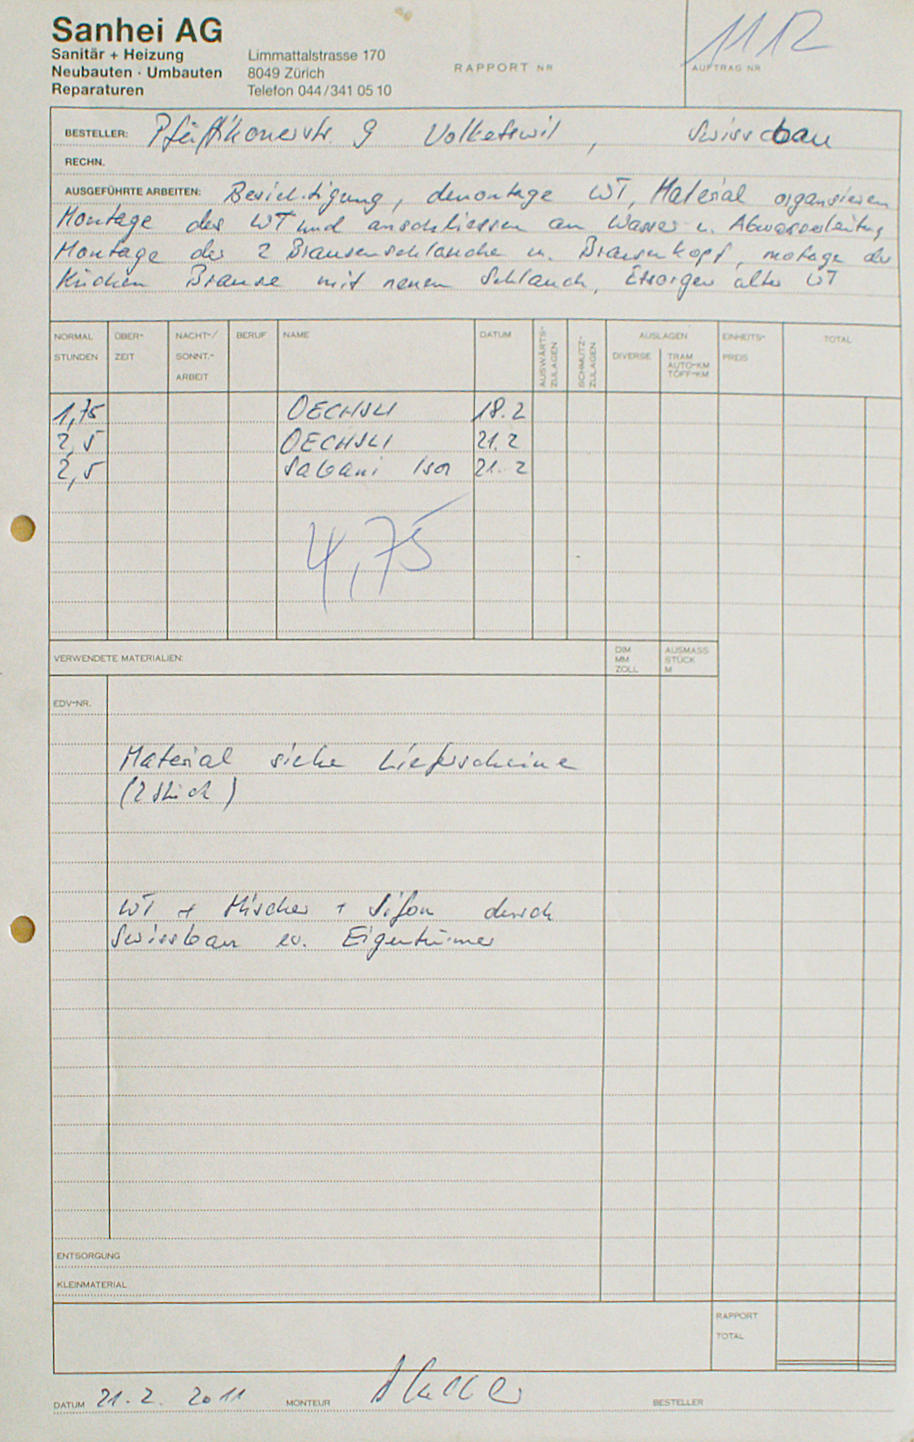 Sanhei AG
Sanitär + Heizung
Neubauten · Umbauten
Reparaturen
Limmattalstrasse 170
8049 Zürich
Telefon 044/341 05 10
RAPPORT NR
1112
AUFTRAG NR
BESTELLER: Pfäffikonerstr. 9 Volketswil, Swissbau
RECHN.
AUSGEFÜHRTE ARBEITEN: Besichtigung, demontage WT, Material organsieren
Montage des WT und anschliessen an Wasser u. Abwasserleitung
Montage der 2 Brausenschläuche u. Brausenkopf, motage der
Küchen Brause mit neuen Schlauch, Etsorgen alter WT
NORMAL STUNDEN
ÜBER- ZEIT
NACHT-/ SONNT.- ARBEIT
BERUF
NAME
DATUM
AUSWÄRTS- ZULAGEN
SCHMUTZ- ZULAGEN
AUSLAGEN
DIVERSE
TRAM AUTO-KM TÖFF-KM
EINHEITS- PREIS
TOTAL
1,75 OECHSLI 18.2
2,5 OECHSLI 21.2
2,5 Sabani Isa 21.2
4,75
VERWENDETE MATERIALIEN:
DIM MM ZOLL
AUSMASS STÜCK M
EDV-NR.
Material siehe Lieferscheine
(2 Stück)
WT + Mischer + Sifon durch
Swissbau ev. Eigentümer
ENTSORGUNG
KLEINMATERIAL
RAPPORT
TOTAL
DATUM 21.2. 2011 MONTEUR BESTELLER